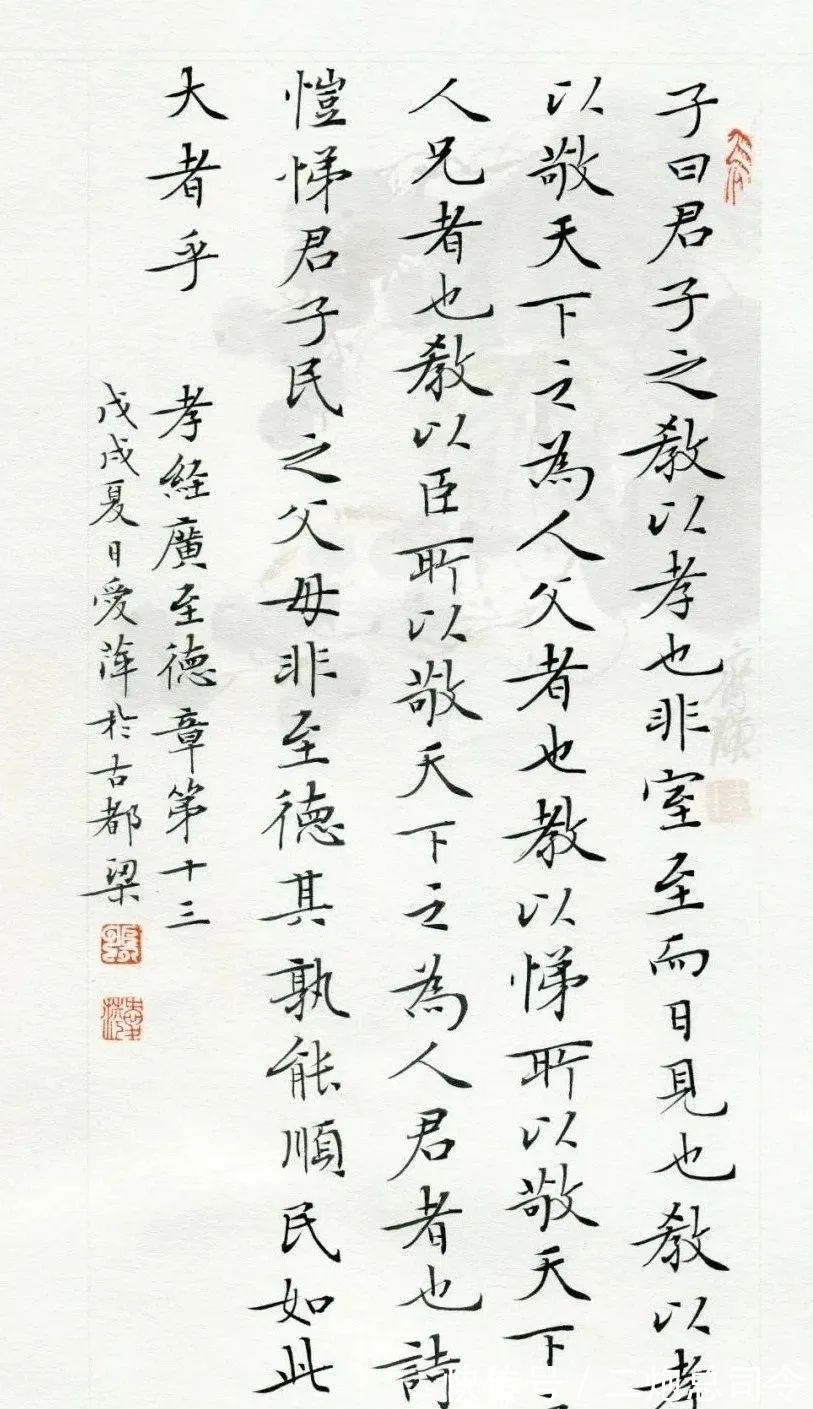 子曰君子之教以孝也非室至而日見也教以孝
以敬天下之為人父者也教以悌所以敬天下
人兄者也教以臣所以敬天下之為人君者也詩
愷悌君子民之父母非至德其孰能順民如此
大者乎
孝經廣至德章第十三
戊戌夏日愛萍於古都梁
齊頎
快传号/二炮总司令